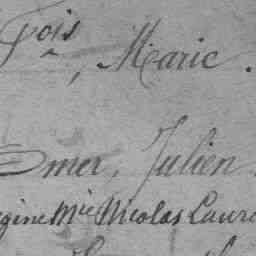 çois
, Marie.
Omer, Julien
gine Mie Nicolas Laur